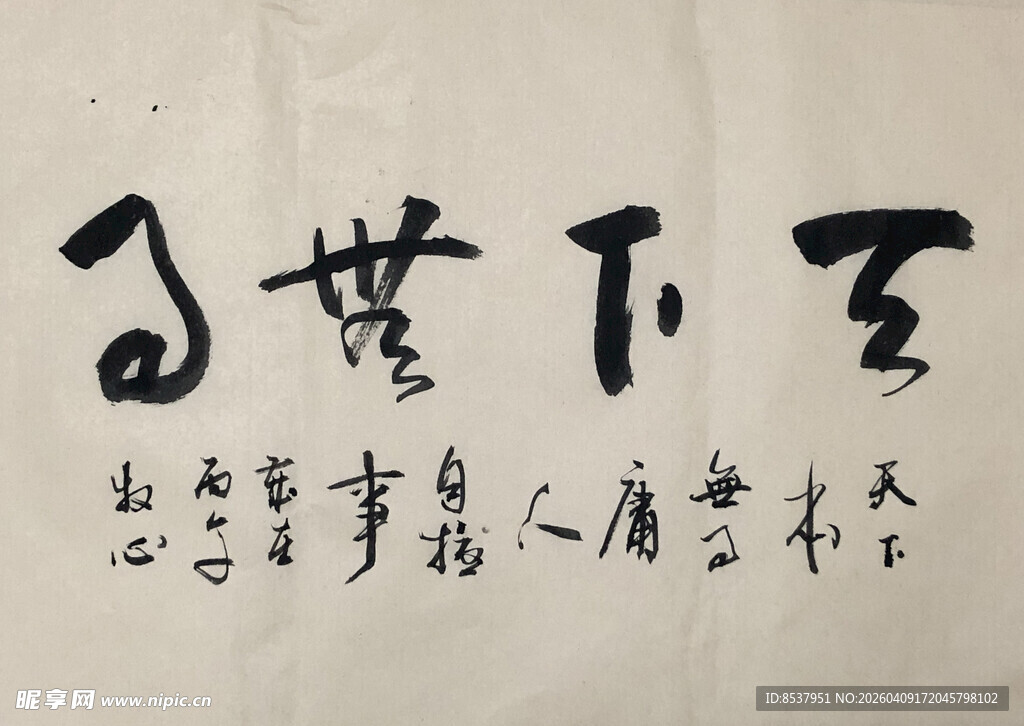 天下無事
天下
本
無事
庸
人
自擾
事
歲在
丙午
牧心
昵享网 www.nipic.cn
ID:8537951 NO:20260409172045798102